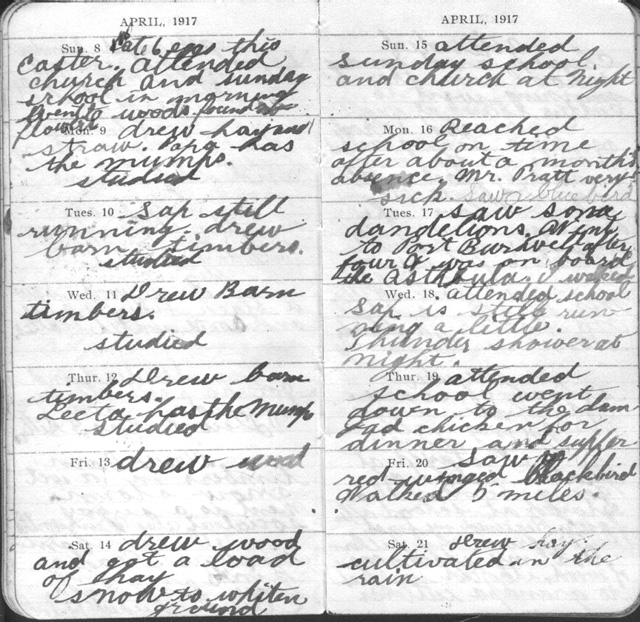 APRIL, 1917
Sun. 8 this
Easter. attended
church and sunday
school in morning
went to woods found
flowers
Mon. 9 drew hay and
straw. has
the mumps.
studied
Tues. 10 Sap still
running. drew
barn timbers.
studied
Wed. 11 Drew Barn
timbers.
studied
Thur. 12 Drew barn
timbers.
Leeta has the Mumps
studied
Fri. 13 drew wood
Sat. 14 drew wood
and got a load
of hay
snow to whiten
ground
APRIL, 1917
Sun. 15 attended
Sunday school.
and church at Night
Mon. 16 Reached
school on time
after about a months
absence. Mr. Pratt very
sick. Saw blue bird
Tues. 17 saw some
dandelions. 
to Port Burwell after
four I was on board
the Ashtabula. I walked
Wed. 18. attended school
Sap is still run
ning a little.
Thunder shower at
night.
Thur. 19 attended
school went
down to the dam
had chicken for
dinner and supper
Fri. 20 Saw
red winged Blackbird
Walked 5 miles.
Sat. 21 Drew hay.
cultivated in the
rain